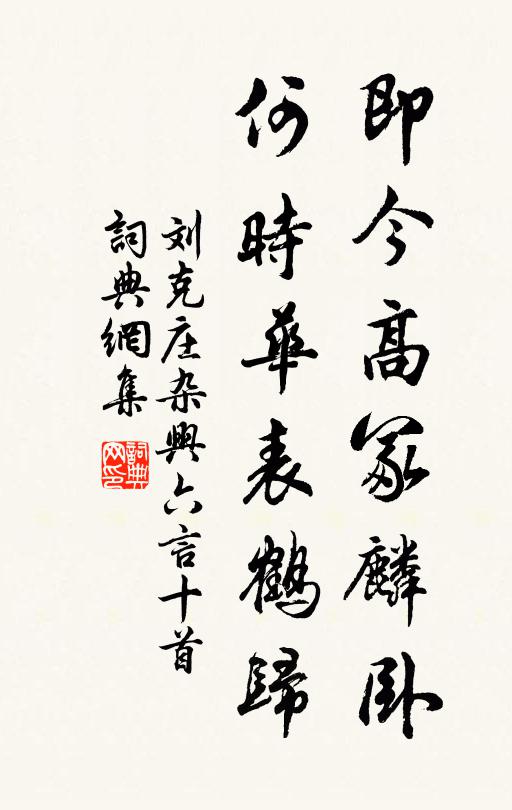 即今高冢麟卧
何時華表鶴歸
刘克庄杂興六言十首
詞典網集
詞典
网印